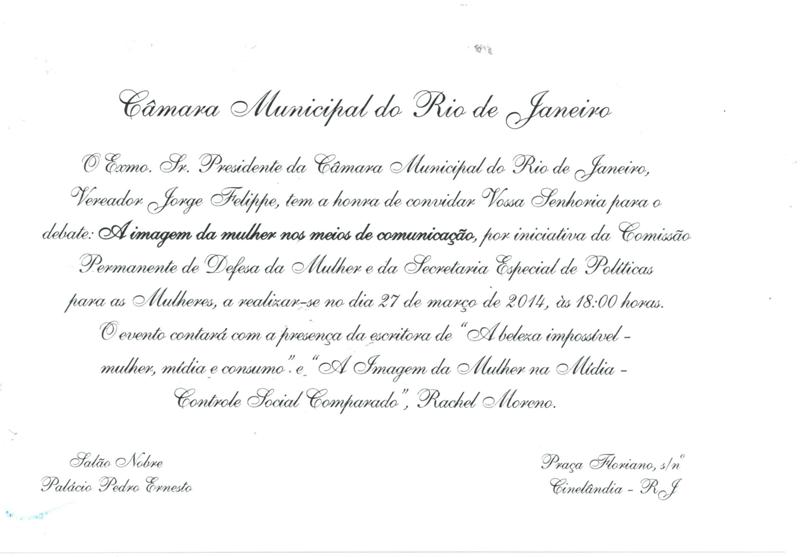 Câmara Municipal do Rio de Janeiro
O Exmo. Sr. Presidente da Câmara Municipal do Rio de Janeiro,
Vereador Jorge Felippe, tem a honra de convidar Vossa Senhoria para o
debate: A imagem da mulher nos meios de comunicação, por iniciativa da Comissão
Permanente de Defesa da Mulher e da Secretaria Especial de Políticas
para as Mulheres, a realizar-se no dia 27 de março de 2014, às 18:00 horas.
O evento contará com a presença da escritora de "A beleza impossível -
mulher, mídia e consumo". e "A Imagem da Mulher na Mídia -
Controle Social Comparado", Rachel Moreno.
Salão Nobre
Palácio Pedro Ernesto
Praça Floriano, s/nº
Cinelândia - RJ